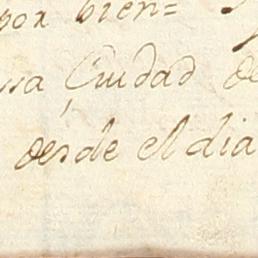 por bien=
ssa Ciudad de
desde el dia